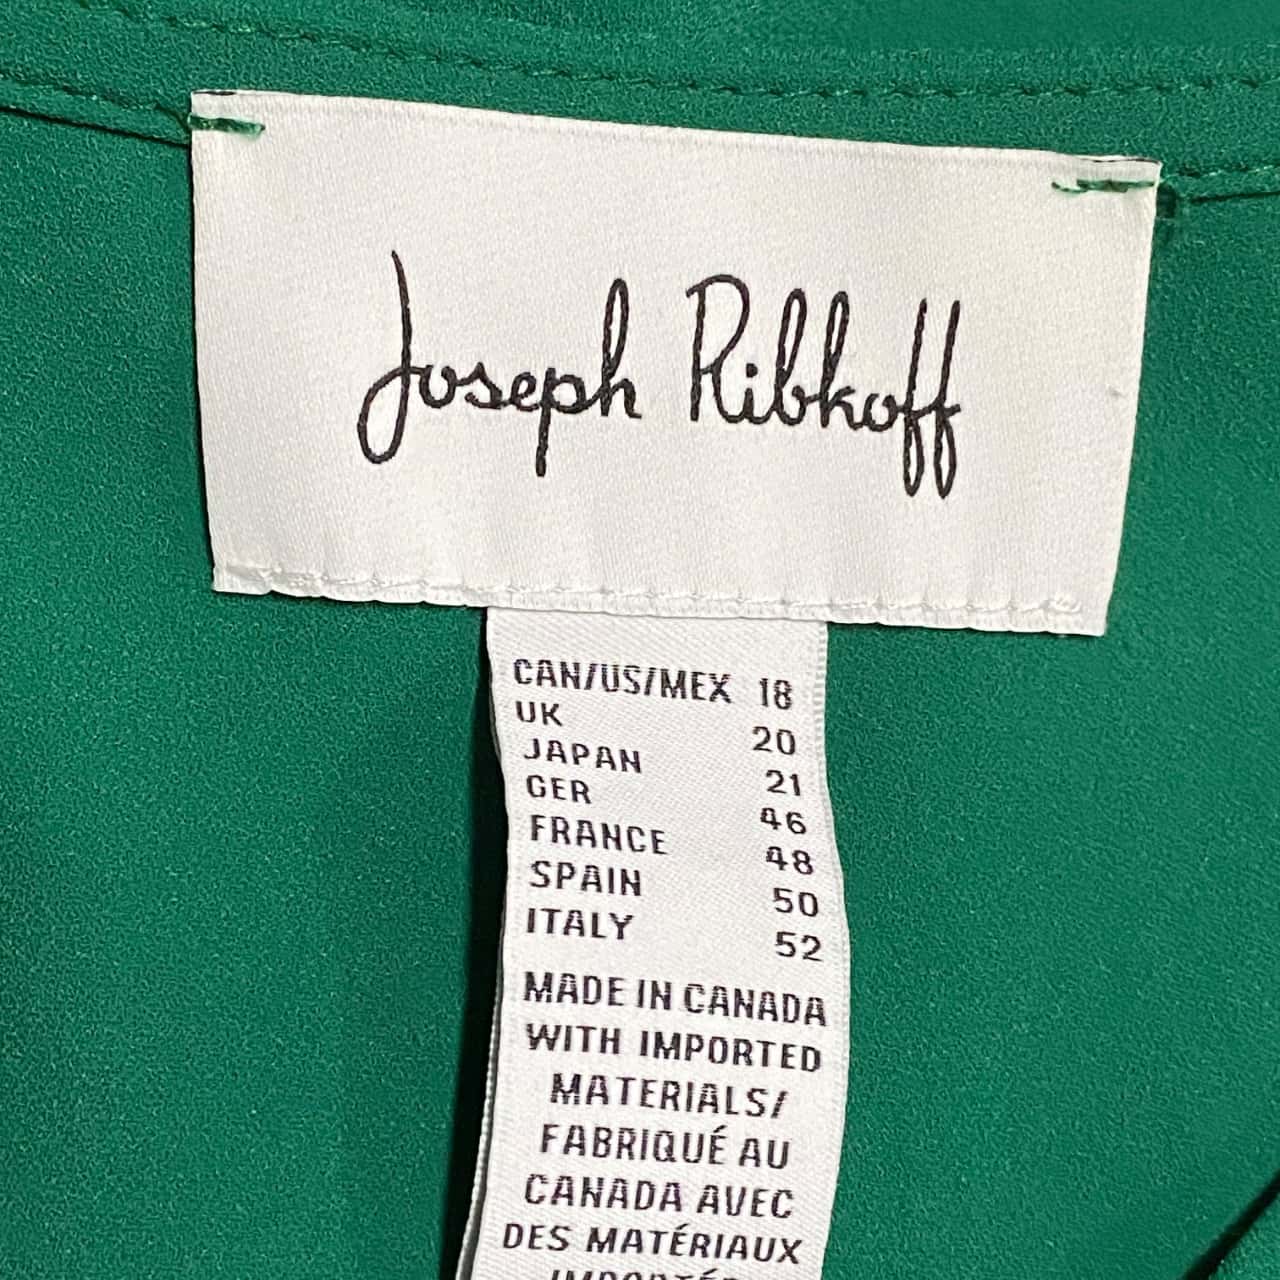 Joseph Ribkoff
CAN/US/MEX 18
UK 20
JAPAN 21
GER 46
FRANCE 48
SPAIN 50
ITALY 52
MADE IN CANADA
WITH IMPORTED
MATERIALS/
FABRIQUÉ AU
CANADA AVEC
DES MATÉRIAUX